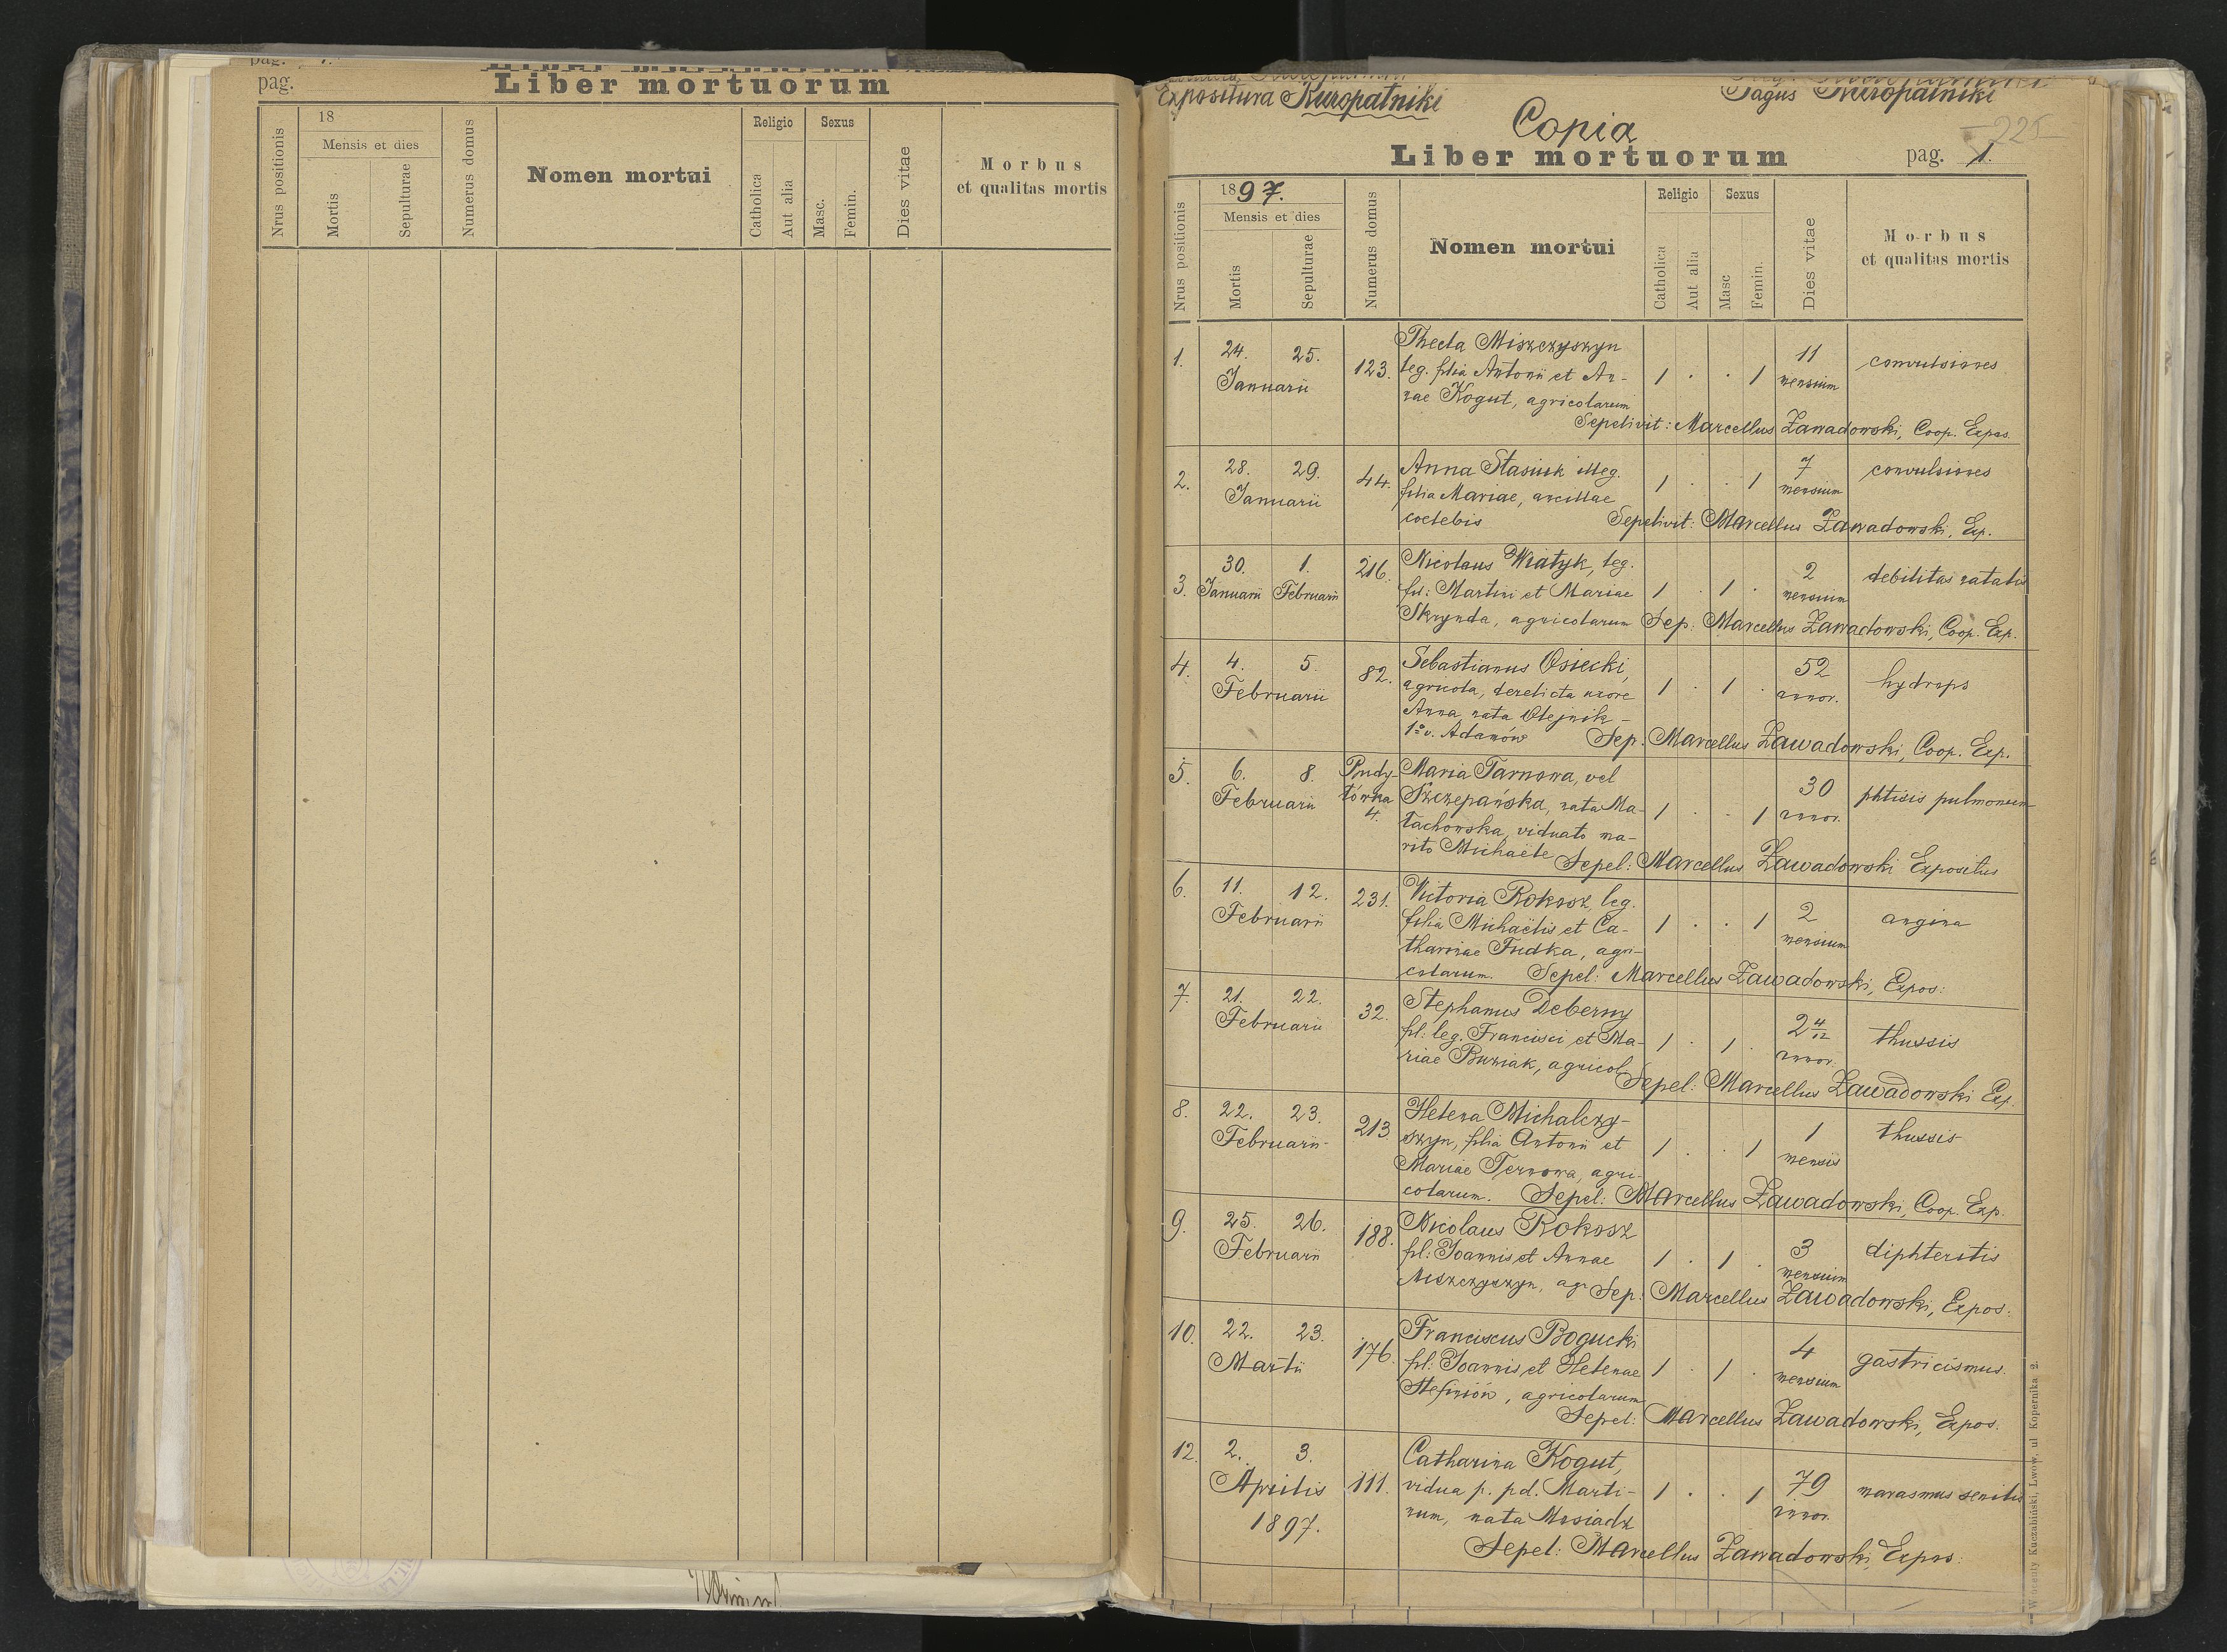 pag.
Liber mortuorum
Nrus positionis
18
Mensis et dies
Mortis
Sepulturae
Numerus domus
Nomen mortui
Religio
Catholica
Aut alia
Sexus
Masc.
Femin.
Dies vitae
Morbus
et qualitas mortis
Expositura Kuropatniki
Pagus Kuropatniki
Copia
225
Liber mortuorum
pag. 1.
Nrus positionis
1897.
Mensis et dies
Mortis
Sepulturae
Numerus domus
Nomen mortui
Religio
Catholica
Aut alia
Sexus
Masc
Femin.
Dies vitae
Morbus
et qualitas mortis
1. 24. 25. Januarii 123. Thecla Miszczyszyn
leg. filia Antonii et An-
nae Kogut, agricolarum
1 . . 1 11 mensium convulsiones
Sepelivit: Marcellus Zawadowski, Coop. Expos.
2. 28. 29. Januarii 44. Anna Stasiuk illeg.
filia Mariae, ancillae
coelebis
1 . . 1 7 mensium convulsiones
Sepelivit: Marcellus Zawadowski, Exp.
3. 30. Januarii 1. Februarii 216. Nicolaus Wiatyk, leg.
fil: Martini et Mariae
Skrynda, agricolarum
1 . 1 . 2 mensium debilitas natalis
Sep. Marcellus Zawadowski, Coop. Exp.
4. 4. 5. Februarii 82. Sebastianus Osiecki,
agricola, derelicta uxore
Anna nata Olejnik -
1º v. Adamów
1 . 1 . 52 annor. hydrops
Sep. Marcellus Zawadowski, Coop. Exp.
5. 6. 8. Februarii Pudy-
łówka
4. Maria Tarnowa, vel
Szczepańska, nata Ma-
łachowska, viduato ma-
rito Michaële
1 . . 1 30 annor. phtisis pulmonum
Sepel: Marcellus Zawadowski Expositus
6. 11. 12. Februarii 231. Victoria Rokosz, leg.
filia Michaëlis et Ca-
tharinae Fudka, agri-
colarum.
1 . . 1 2 mensium angina
Sepel: Marcellus Zawadowski, Expos:
7. 21. 22. Februarii 32. Stephanus Deberny
fil: leg. Francisci et Ma-
riae Buziak, agricol.
1 . 1 . 2 4/12 annor. thussis
Sepel: Marcellus Zawadowski Exp.
8. 22. 23. Februarii 213 Helena Michalczy-
szyn, filia Antonii et
Mariae Ternowa, agri-
colarum.
1 . . 1 1 mensis thussis
Sepel: Marcellus Zawadowski, Coop. Exp.
9. 25. 26. Februarii 188. Nicolaus Rokosz
fil: Joannis et Annae
Miszczyszyn, agr
1 . 1 . 3 mensium diphteritis
Sep: Marcellus Zawadowski, Expos:
10. 22. 23. Martii 176. Franciscus Bogucki
fil: Joannis et Helenae
Stefiniów, agricolarum
1 . 1 . 4 mensium gastricismus.
Sepel: Marcellus Zawadowski, Expos.
12. 2. 3. Aprilis
1897. 111. Catharina Kogut,
vidua p. pd. Marti-
num, nata Mosiadz
1 . . 1 79 annor. marasmus senilis
Sepel: Marcellus Zawadowski, Expos:
Wincenty Kuczabiński, Lwów, ul Kopernika. 2.